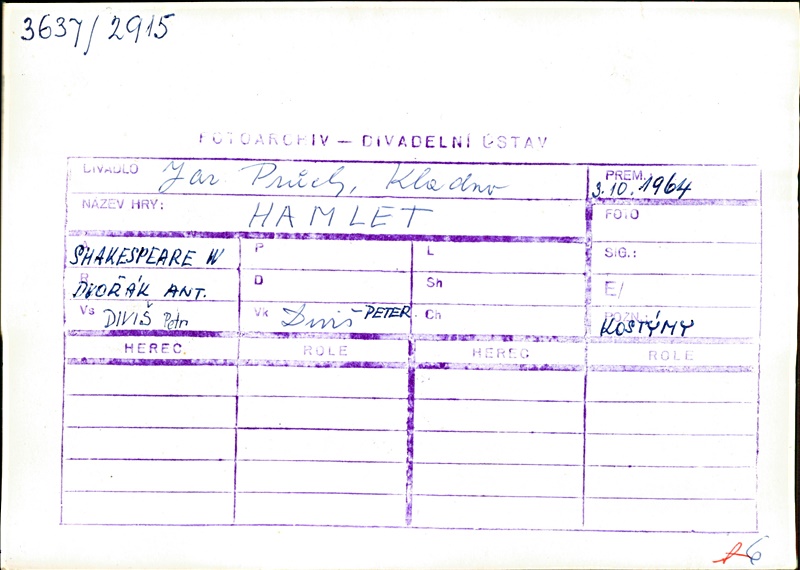 3637/2915
FOTOARCHIV – DIVADELNÍ ÚSTAV
DIVADLO Jar Průch, Kladno
PREM. 3.10.1964
NÁZEV HRY: HAMLET
FOTO
A SHAKESPEARE W
P
L
SIG.:
R DVOŘÁK ANT.
D
Sh
E/
Vs DIVIŠ Petr
Vk Diviš PETER
Ch
POZN.: KOSTÝMY
HEREC ROLE HEREC ROLE
A6